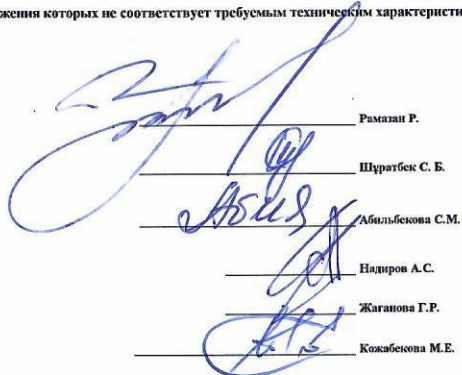 жения которых не соответствует требуемым техническим характеристи
Рамазан Р.
Шұратбек С. Б.
Абильбекова С.М.
Надиров А.С.
Жаганова Г.Р.
Кожабекова М.Е.